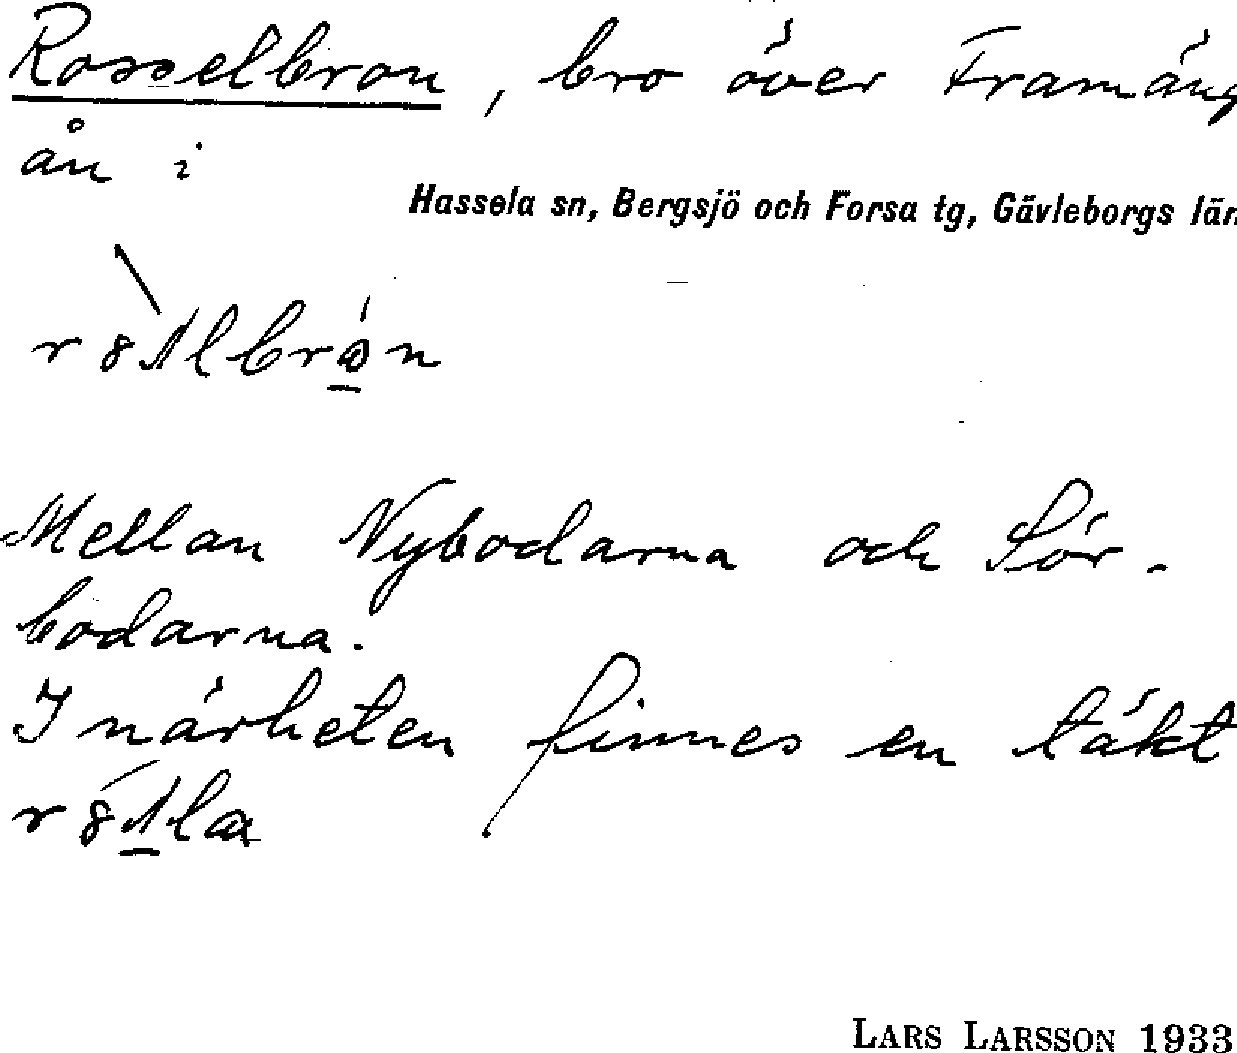 Rosselbron, bro över Framäng
ån i
Hassela sn, Bergsjö och Forsa tg, Gävleborgs län
Mellan Nybodarna och Sör-
bodarna.
I närheten finnes en täkt
LARS LARSSON 1933